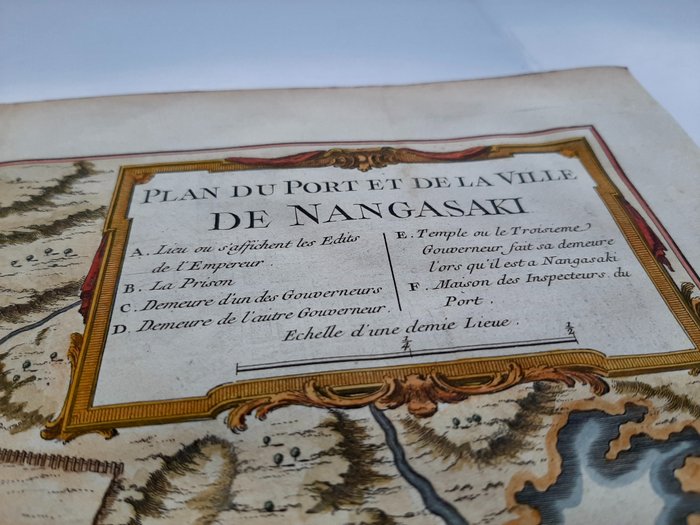 PLAN DU PORT ET DE LA VILLE
DE NANGASAKI
A. Lieu ou s'affichent les Edits
de l'Empereur.
B. La Prison
C. Demeure d'un des Gouverneurs
D. Demeure de l'autre Gouverneur.
E. Temple ou le Troisieme
Gouverneur fait sa demeure
l'ors qu'il est a Nangasaki
F. Maison des Inspecteurs du
Port.
Echelle d'une demie Lieue.
1/4 1/2